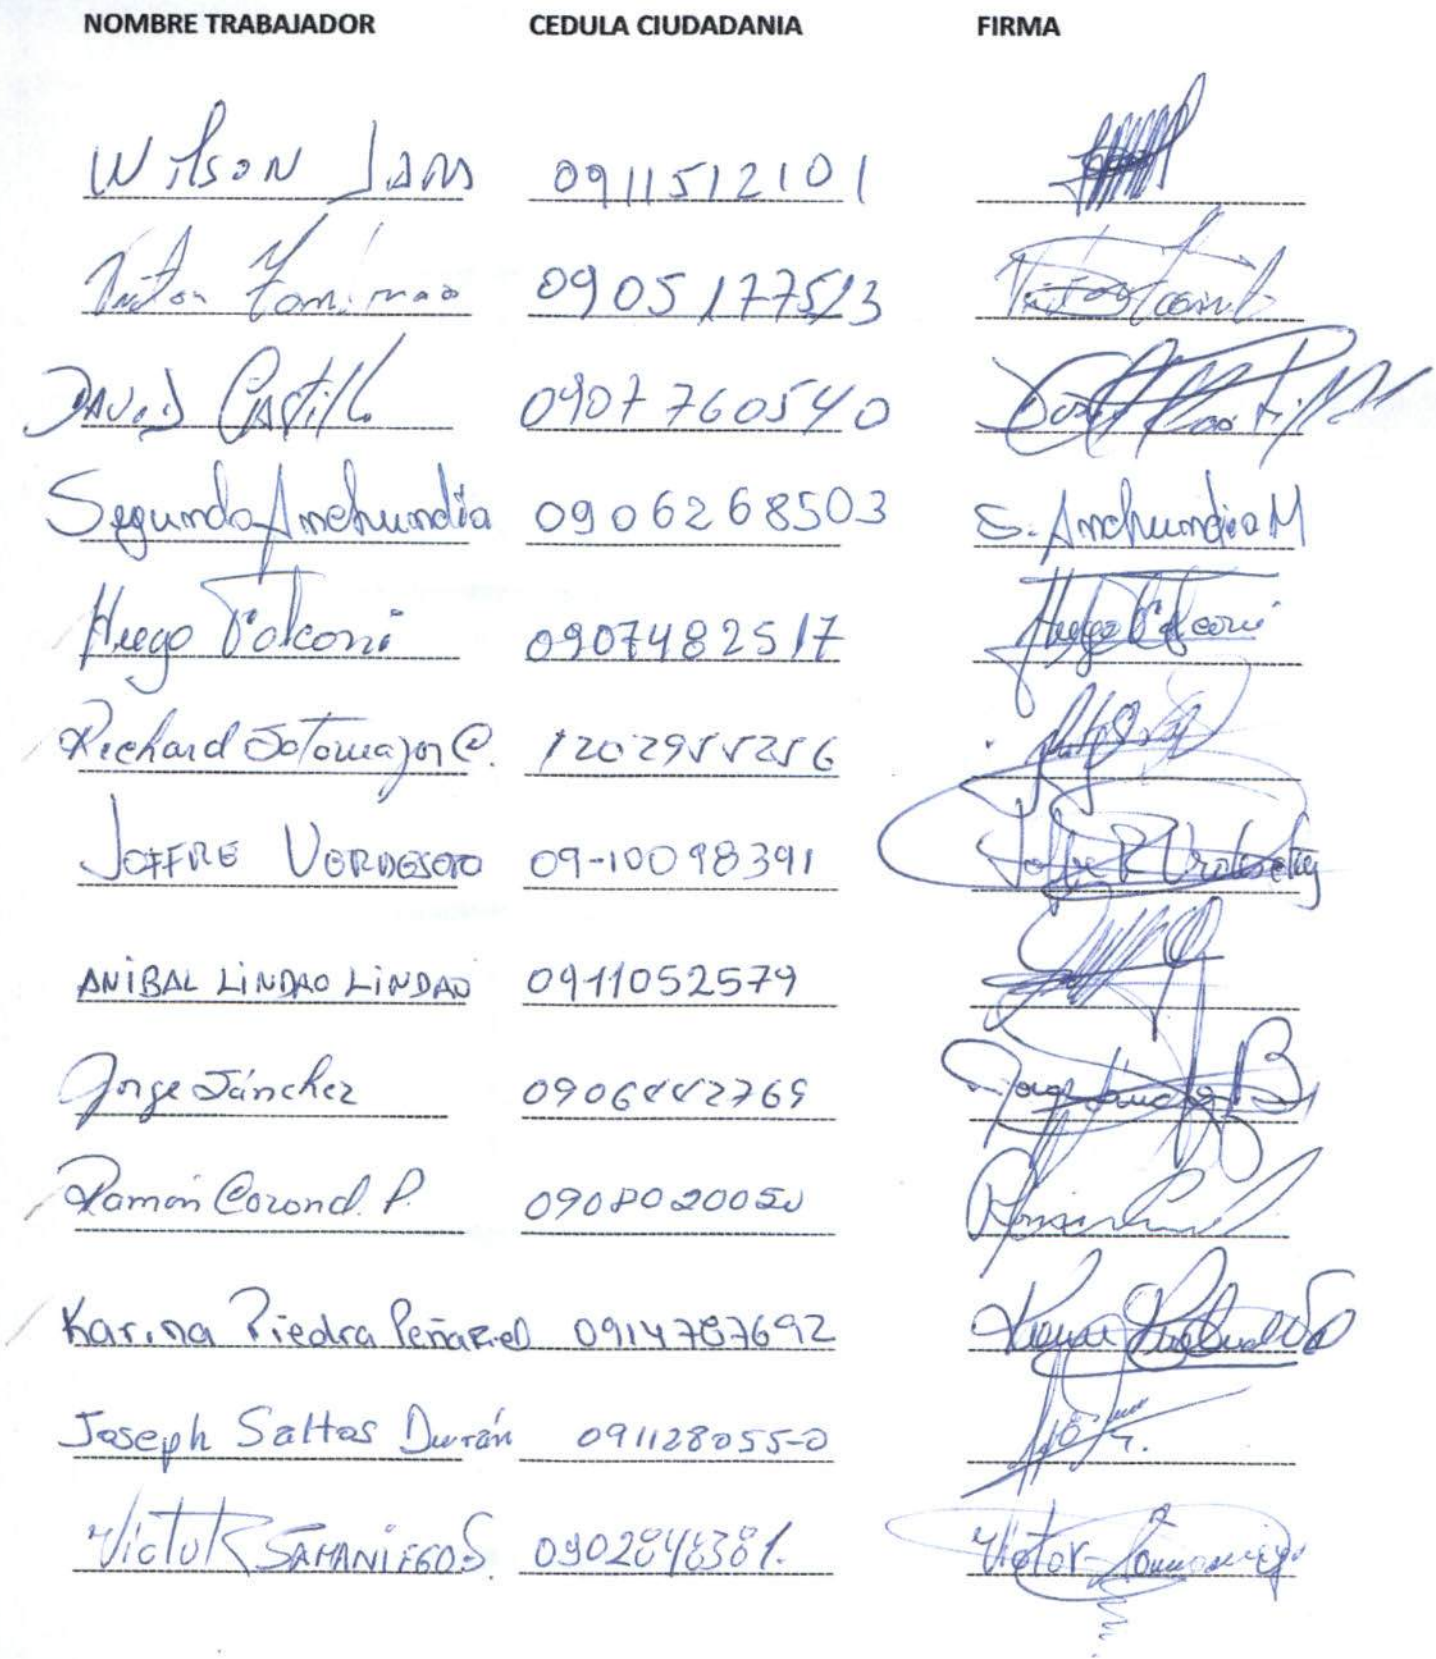 NOMBRE TRABAJADOR CEDULA CIUDADANIA FIRMA
Wilson 0911512101
0905177513
DAVID CASTILLO 0907760540
Segundo Anchundia 0906268503 S. Anchundia M
Hugo Falconi 0907482517 Hugo Falconi
Richard Sotomayor C. 1202955256
JOFFRE VERDESOTO 09-10098391
ANIBAL LINDAO LINDAO 0911052579
Jorge Sánchez
Ramón Coronel P. 0908020050
Karina Piedra Peñafiel 0914787692
Joseph Saltos Durán 091128055-0
VICTOR SAMANIEGO S. Victor Samaniego